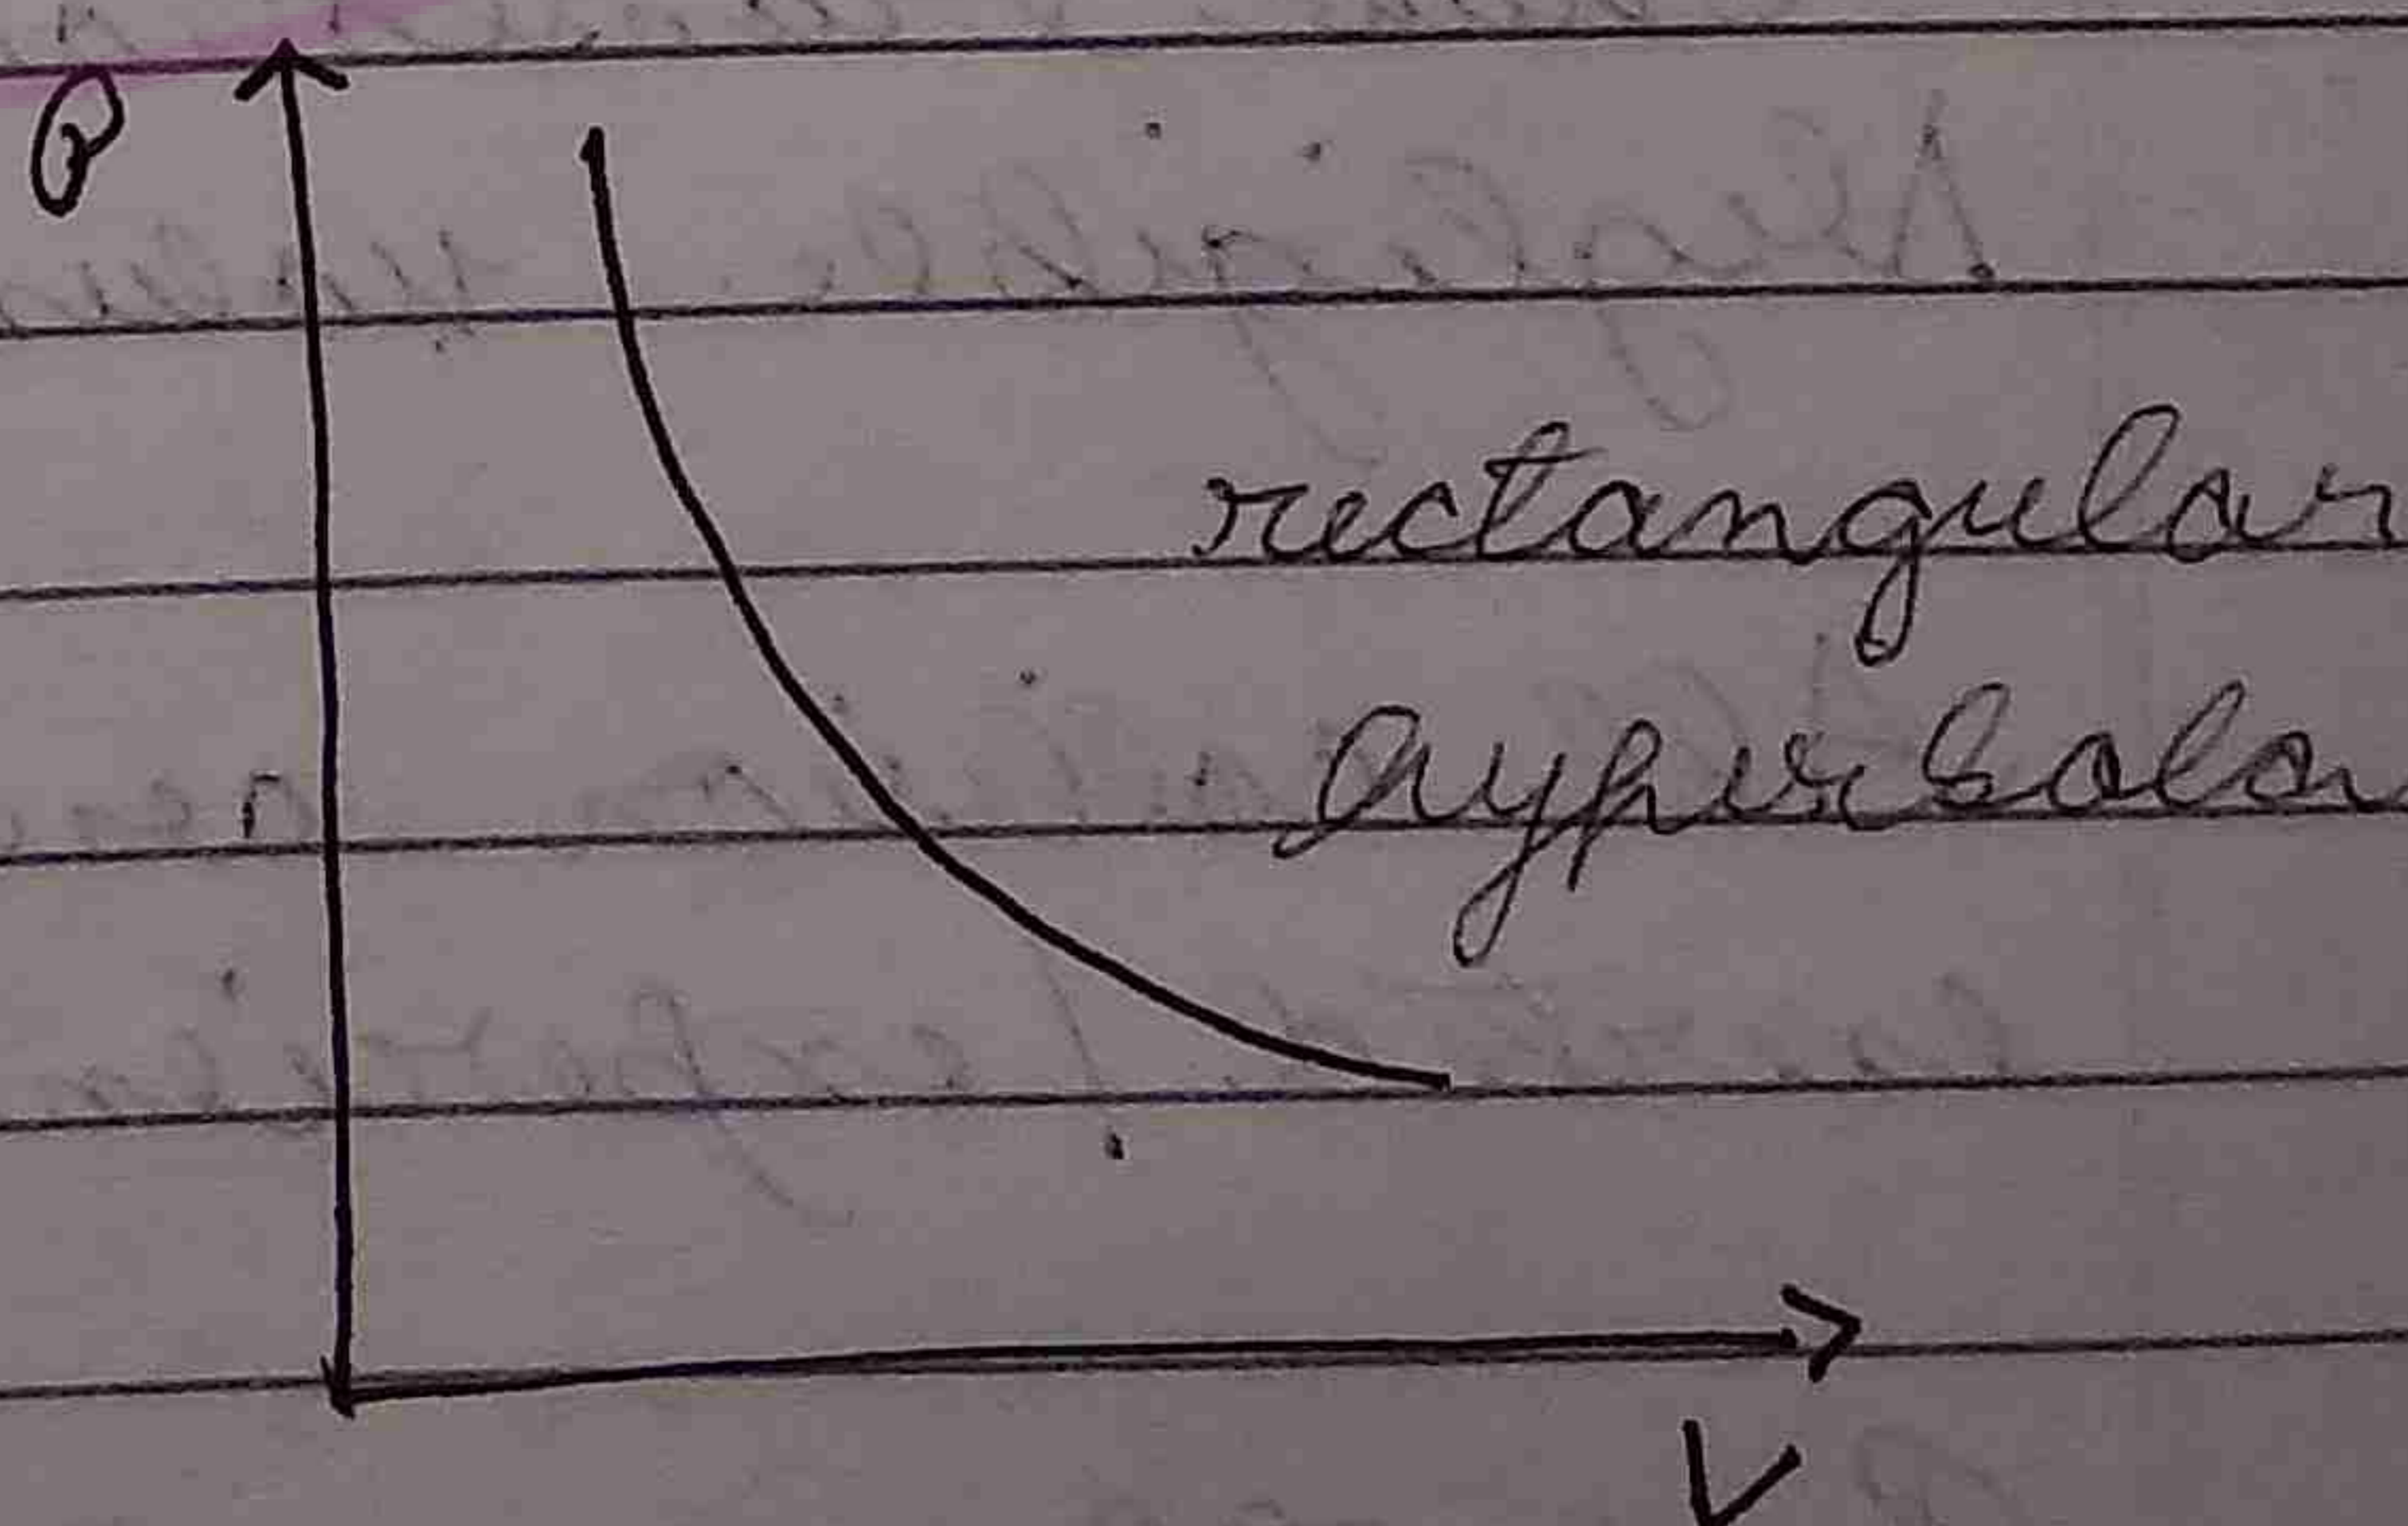 P
rectangular
hyperbola
V